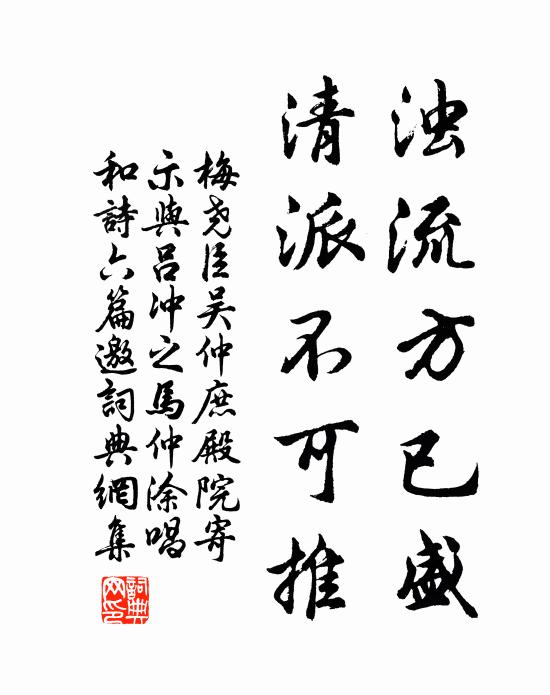 浊流方已盛
清派不可推
梅尧臣吴仲庶殿院寄
示與吕冲之馬仲涂唱
和詩六篇邀詞典網集
詞典网印